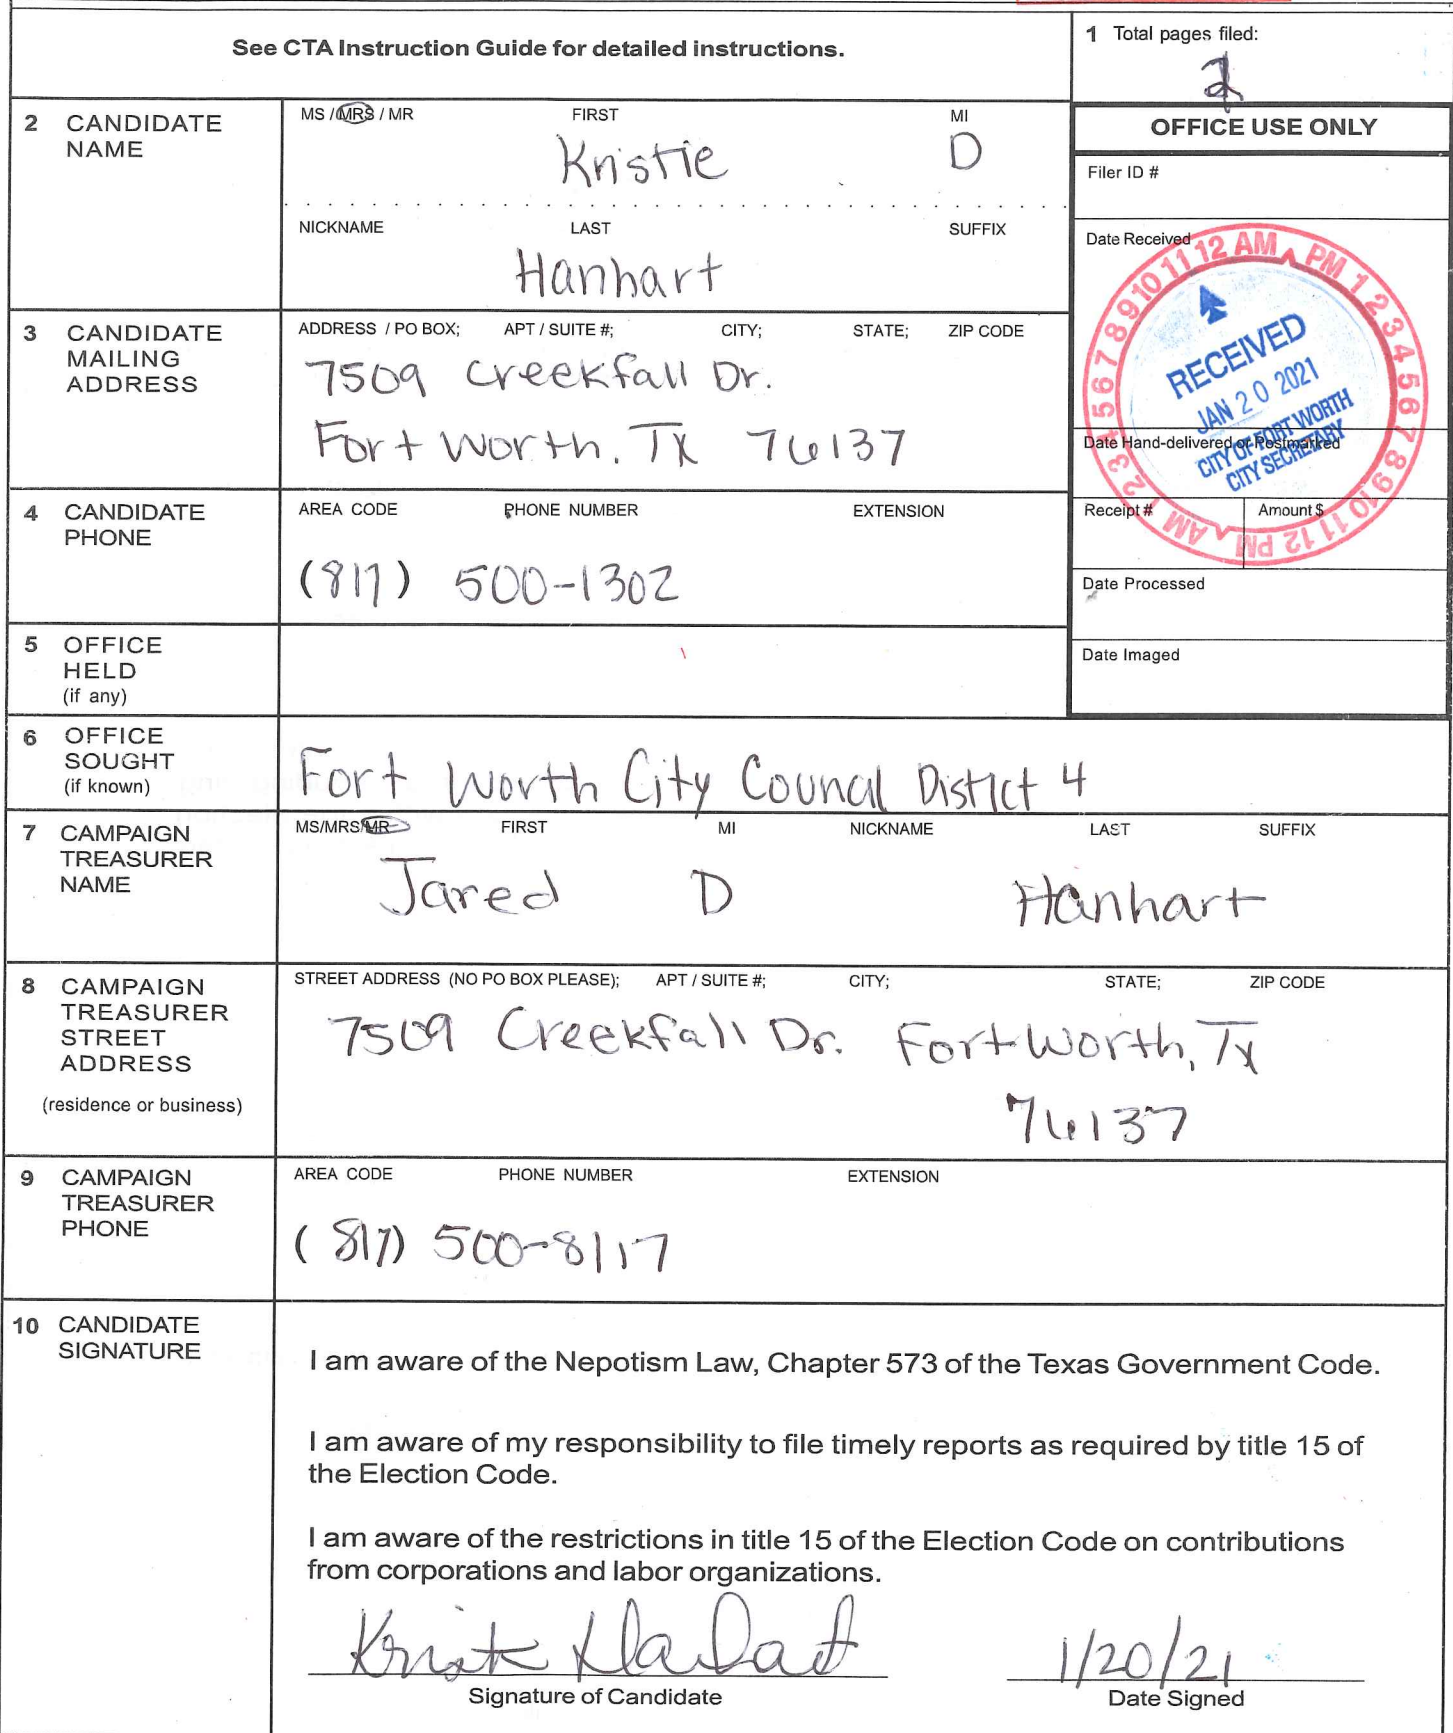 See CTA Instruction Guide for detailed instructions.
1 Total pages filed:
2
2 CANDIDATE NAME
MS / MRS / MR FIRST MI
Kristie D
NICKNAME LAST SUFFIX
Hanhart
OFFICE USE ONLY
Filer ID #
Date Received
12 AM PM 1 2 3 4 5 6 7 8 9 10 11 12 PM AM 1 2 3 4 5 6 7 8 9 10 11
RECEIVED
JAN 20 2021
CITY OF FORT WORTH
CITY SECRETARY
Date Hand-delivered or Postmarked
Receipt # Amount $
Date Processed
Date Imaged
3 CANDIDATE MAILING ADDRESS
ADDRESS / PO BOX; APT / SUITE #; CITY; STATE; ZIP CODE
7509 Creekfall Dr.
Fort Worth, TX 76137
4 CANDIDATE PHONE
AREA CODE PHONE NUMBER EXTENSION
(817) 500-1302
5 OFFICE HELD
(if any)
6 OFFICE SOUGHT
(if known)
Fort Worth City Council District 4
7 CAMPAIGN TREASURER NAME
MS/MRS/MR FIRST MI NICKNAME LAST SUFFIX
Jared D Hanhart
8 CAMPAIGN TREASURER STREET ADDRESS
(residence or business)
STREET ADDRESS (NO PO BOX PLEASE); APT / SUITE #; CITY; STATE; ZIP CODE
7509 Creekfall Dr. Fort Worth, Tx
76137
9 CAMPAIGN TREASURER PHONE
AREA CODE PHONE NUMBER EXTENSION
(817) 500-8117
10 CANDIDATE SIGNATURE
I am aware of the Nepotism Law, Chapter 573 of the Texas Government Code.
I am aware of my responsibility to file timely reports as required by title 15 of
the Election Code.
I am aware of the restrictions in title 15 of the Election Code on contributions
from corporations and labor organizations.
Kristie Hanhart 1/20/21
Signature of Candidate Date Signed